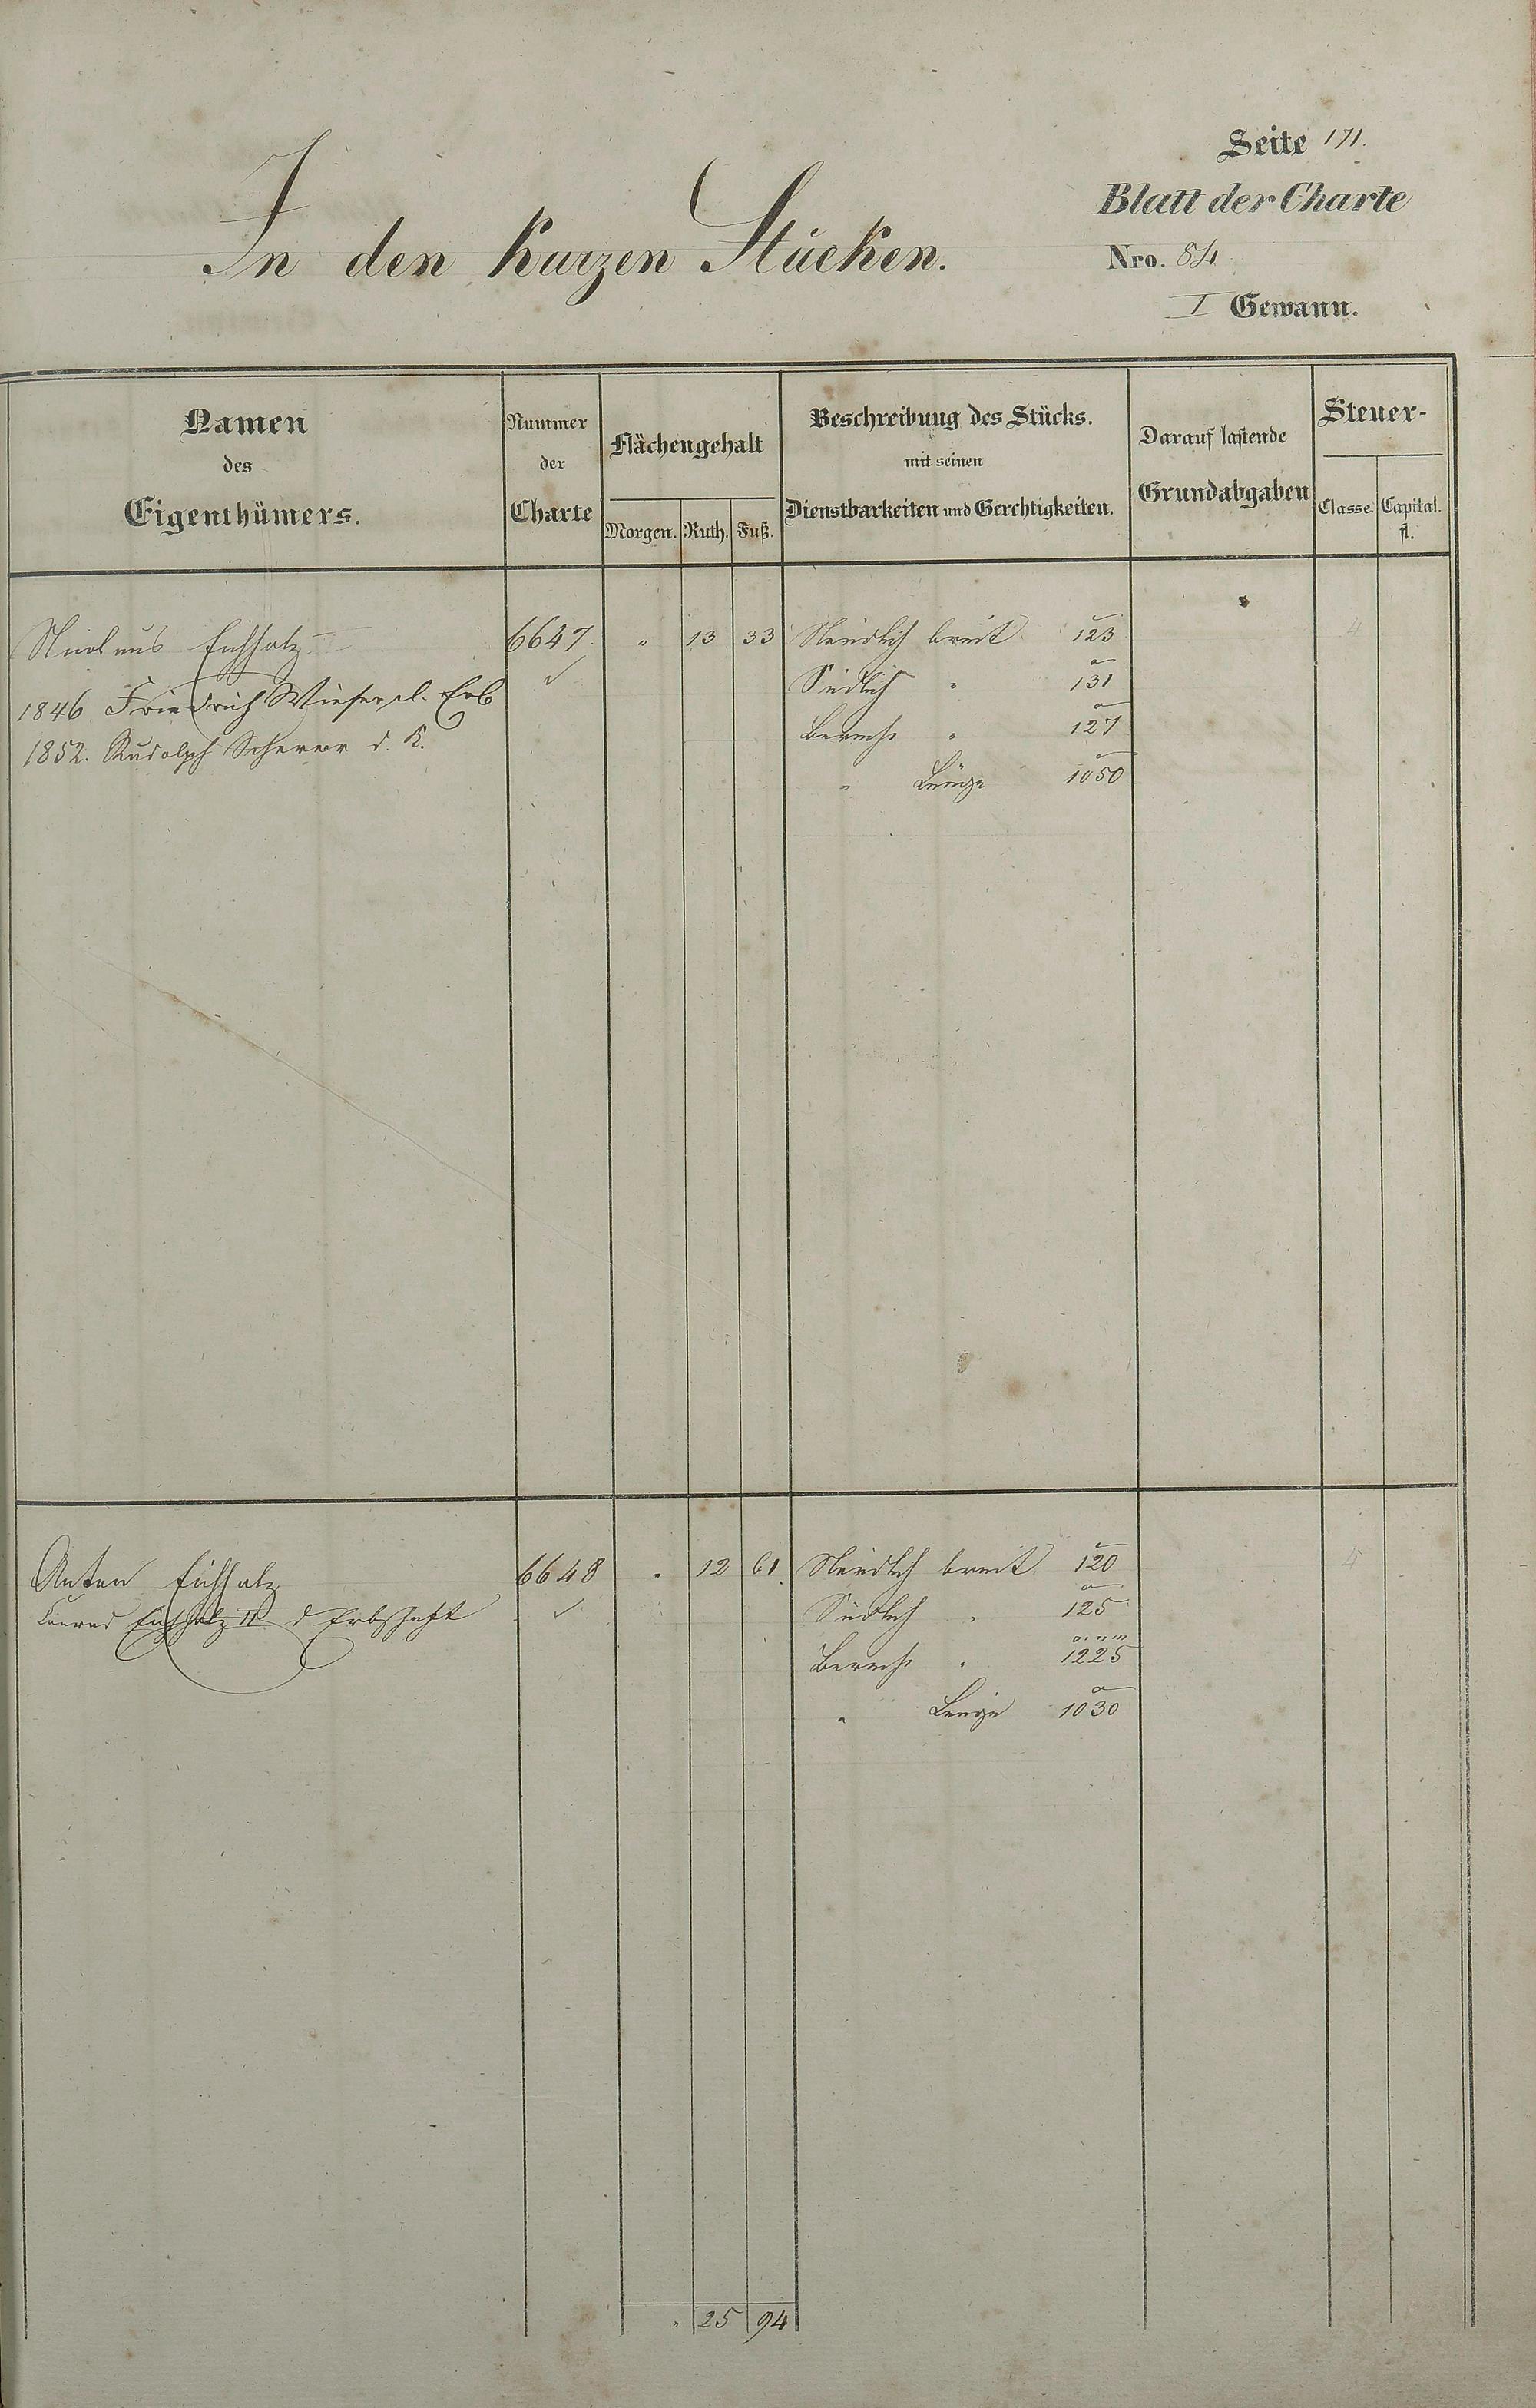 Seite 171.
Blatt der Charte
Nro. 84
I Gewann.
In den Kurzen Stücken.
Namen
des
Eigenthümers.
Nummer
der
Charte
Flächengehalt
Morgen. Ruth. Fuß.
Beschreibung des Stücks.
mit seinen
Dienstbarkeiten und Gerechtigkeiten.
Darauf lastende
Grundabgaben
Steuer-
Classe. Capital.
fl.
Nicolaus Eichholz 6647. " 13 33 Nördlich breit 123 4
1846 Friedrich Wieser d. Erb ✓ Südlich " 131
1852. Rudolph Scherer d. K. Berech. " 127
" Länge 1050
Anton Eichholz 6648 " 12 61 Nördlich breit 120
Konrad Eichholz II d Erbschaft ✓ Südlich " 125
Berech. " 1225
" Länge 1030
" 25 94